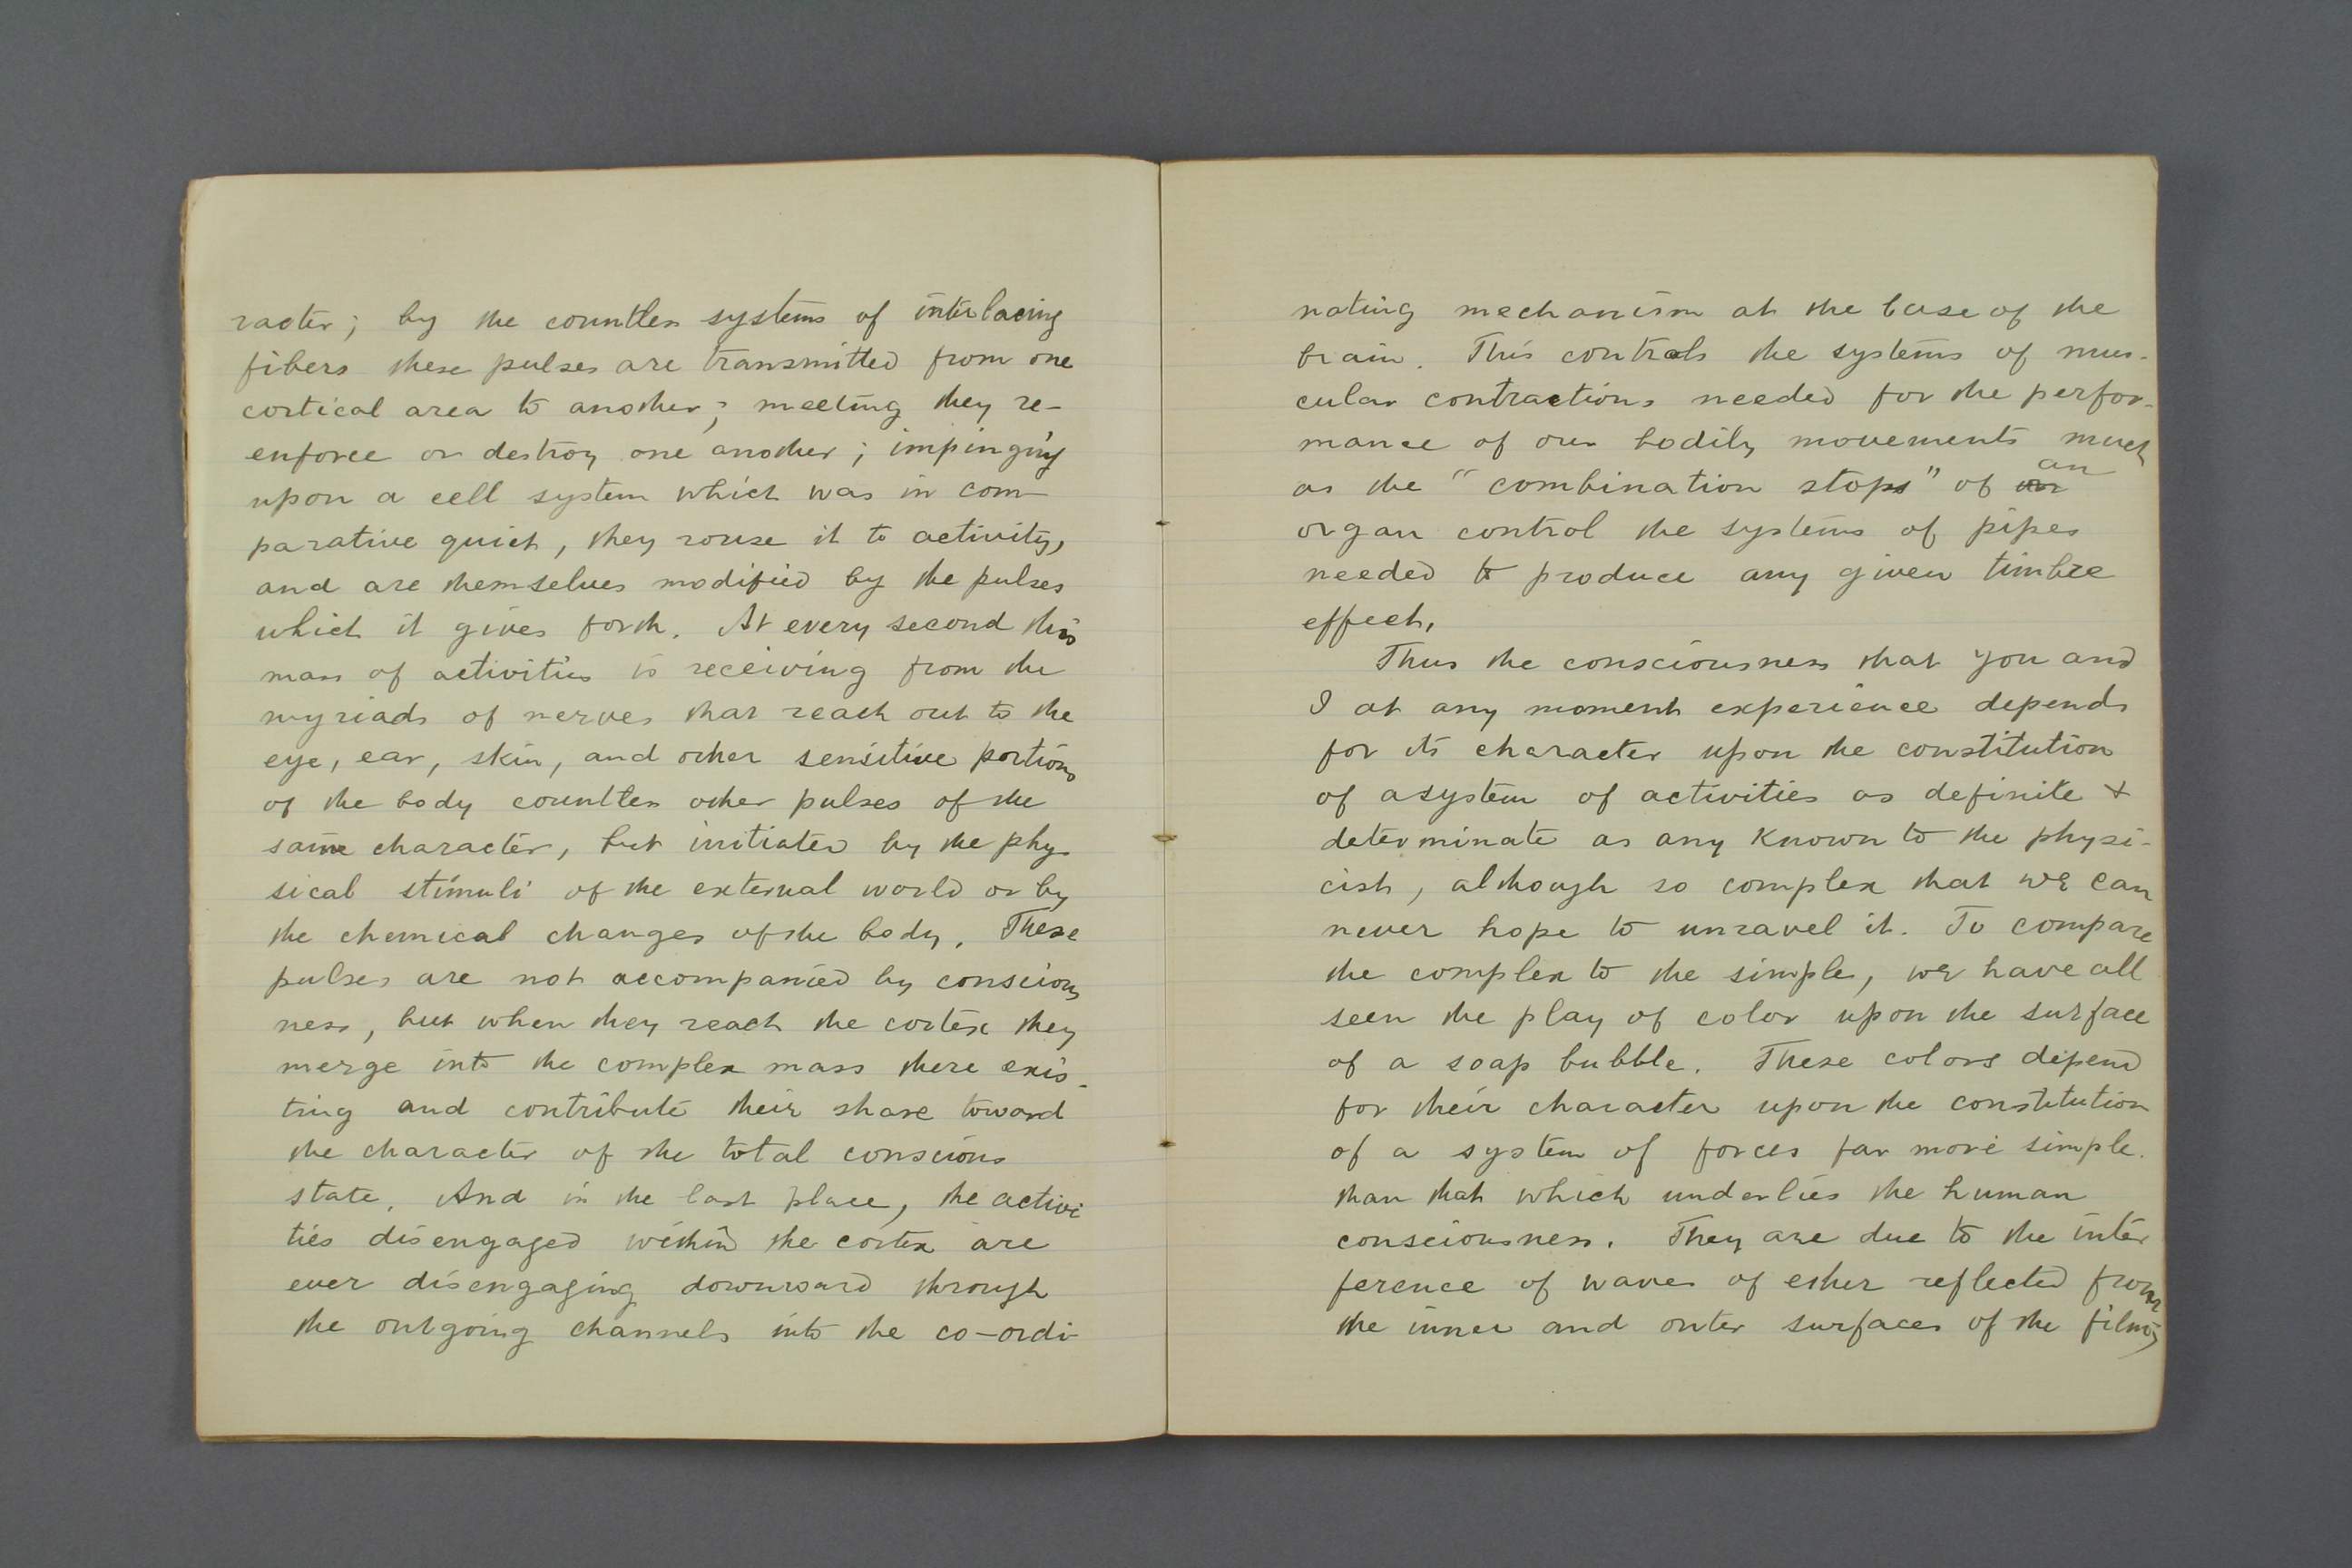 racter; by the countless systems of interlacing
fibers these pulses are transmitted from one
cortical area to another; meeting they re-
enforce or destroy one another; impinging
upon a cell system which was in com-
parative quiet, they rouse it to activity,
and are themselves modified by the pulses
which it gives forth. At every second this
mass of activities is receiving from the
myriads of nerves that reach out to the
eye, ear, skin, and other sensitive portions
of the body countless other pulses of the
same character, but initiated by the phy-
sical stimuli of the external world or by
the chemical changes of the body. These
pulses are not accompanied by conscious
ness, but when they reach the cortex they
merge into the complex mass there exis-
ting and contribute their share toward
the character of the total conscious
state. And in the last place, the activi
ties disengaged within the cortex are
ever disengaging downward through
the outgoing channels into the co-ordi-
nating mechanism at the base of the
brain. This controls the systems of mus-
cular contractions needed for the perfor-
mance of our bodily movements much
as the "combination stops" of an
organ control the systems of pipes
needed to produce any given timbre
effect.
Thus the consciousness that you and
I at any moment experience depends
for its character upon the constitution
of a system of activities as definite &
determinate as any known to the physi-
cist, although so complex that we can
never hope to unravel it. To compare
the complex to the simple, we have all
seen the play of color upon the surface
of a soap bubble. These colors depend
for their character upon the constitution
of a system of forces far more simple.
than that which underlies the human
consciousness. They are due to the inter
ference of waves of ether reflected from
the inner and outer surfaces of the film;